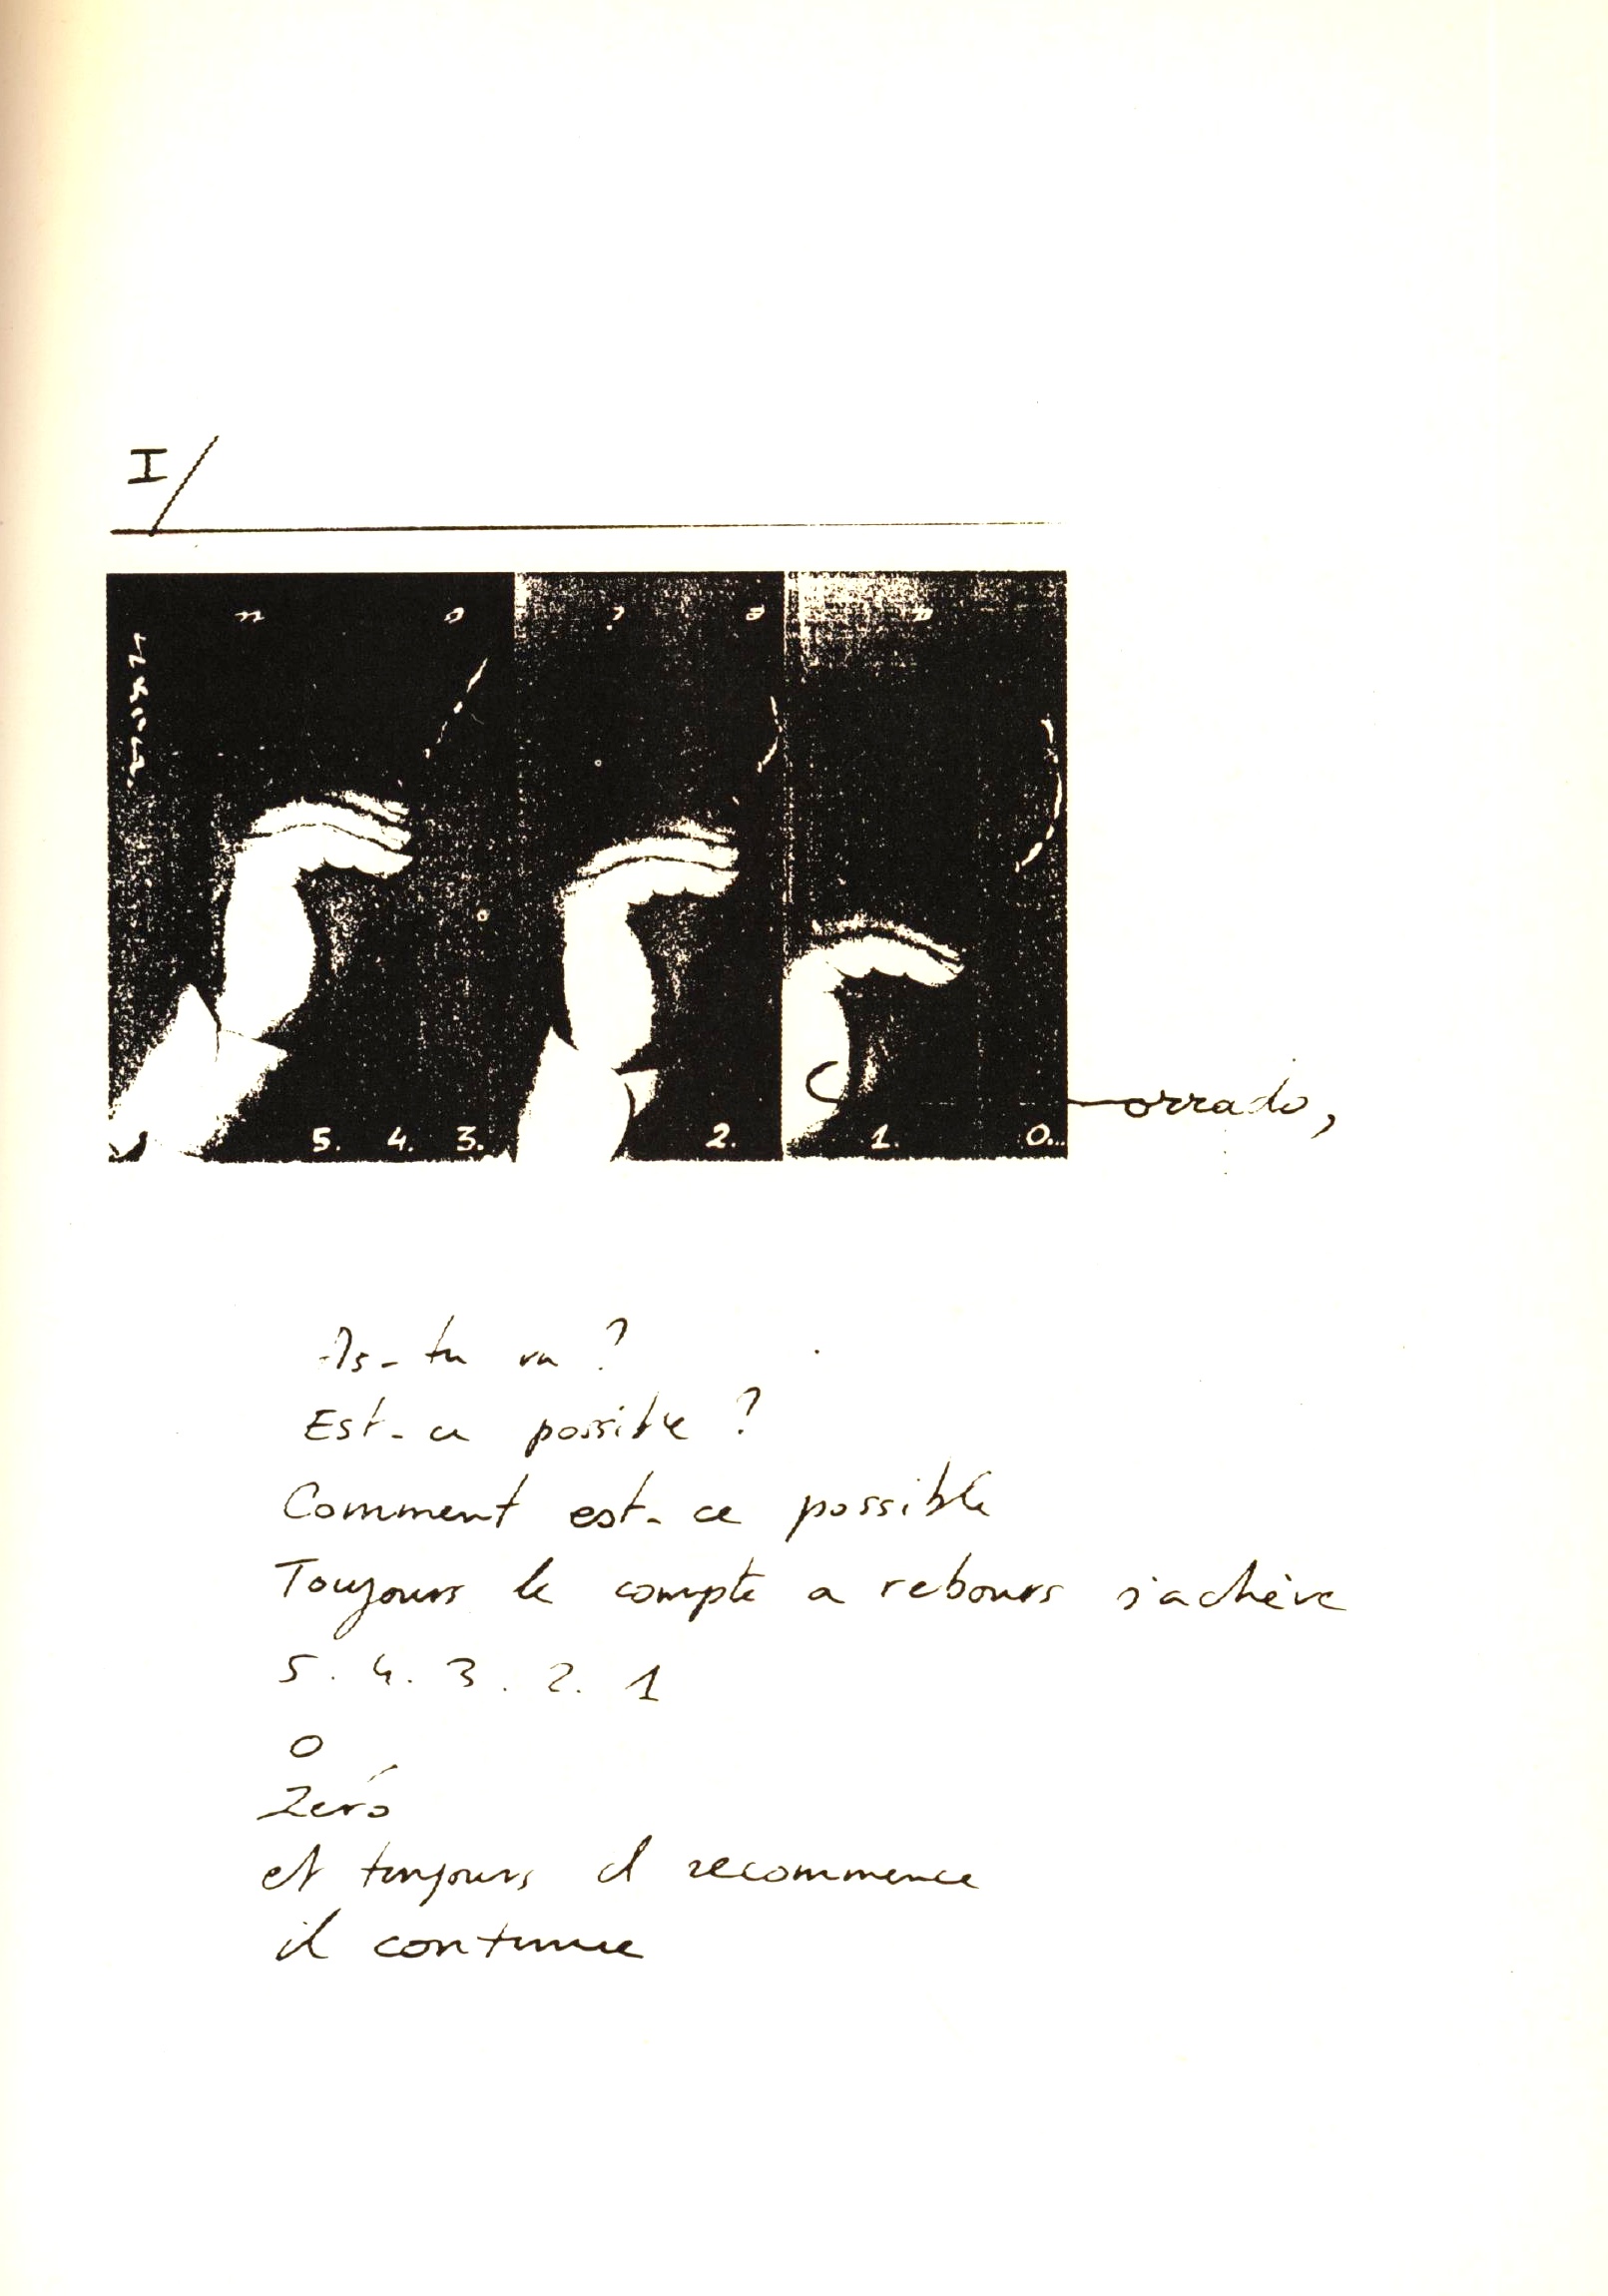 I/
5. 4. 3. 2. 1. 0...
Corrado,
As-tu vu ?
Est-ce possible ?
Comment est-ce possible
Toujours le compte a rebours s'achève
5. 4. 3. 2. 1
0
Zéro
et toujours il recommence
il continue